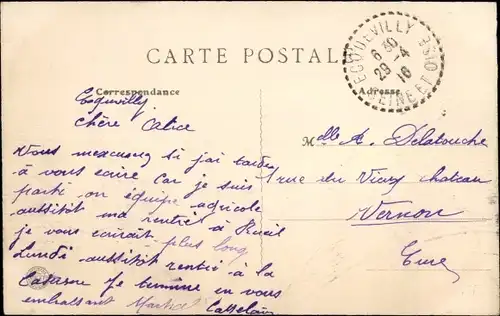 CARTE POSTALE
ECQUEVILLY
6 30
29 -4
16
SEINE ET OISE
Correspondance
Adresse
Ecquevilly
Chère Alice
Vous mexcuserz si j'ai tardez
à vous ecrire car je suis
parti en équipe agricole
aussitôt ma rentré à Rueil
je vous ecrirait plus long
Lundi aussitôt rentré à la
Caserne Je termine en vous
embrassant
Mdlle A. Delabouche
1 rue du Vieux chateau
Vernon
Eure